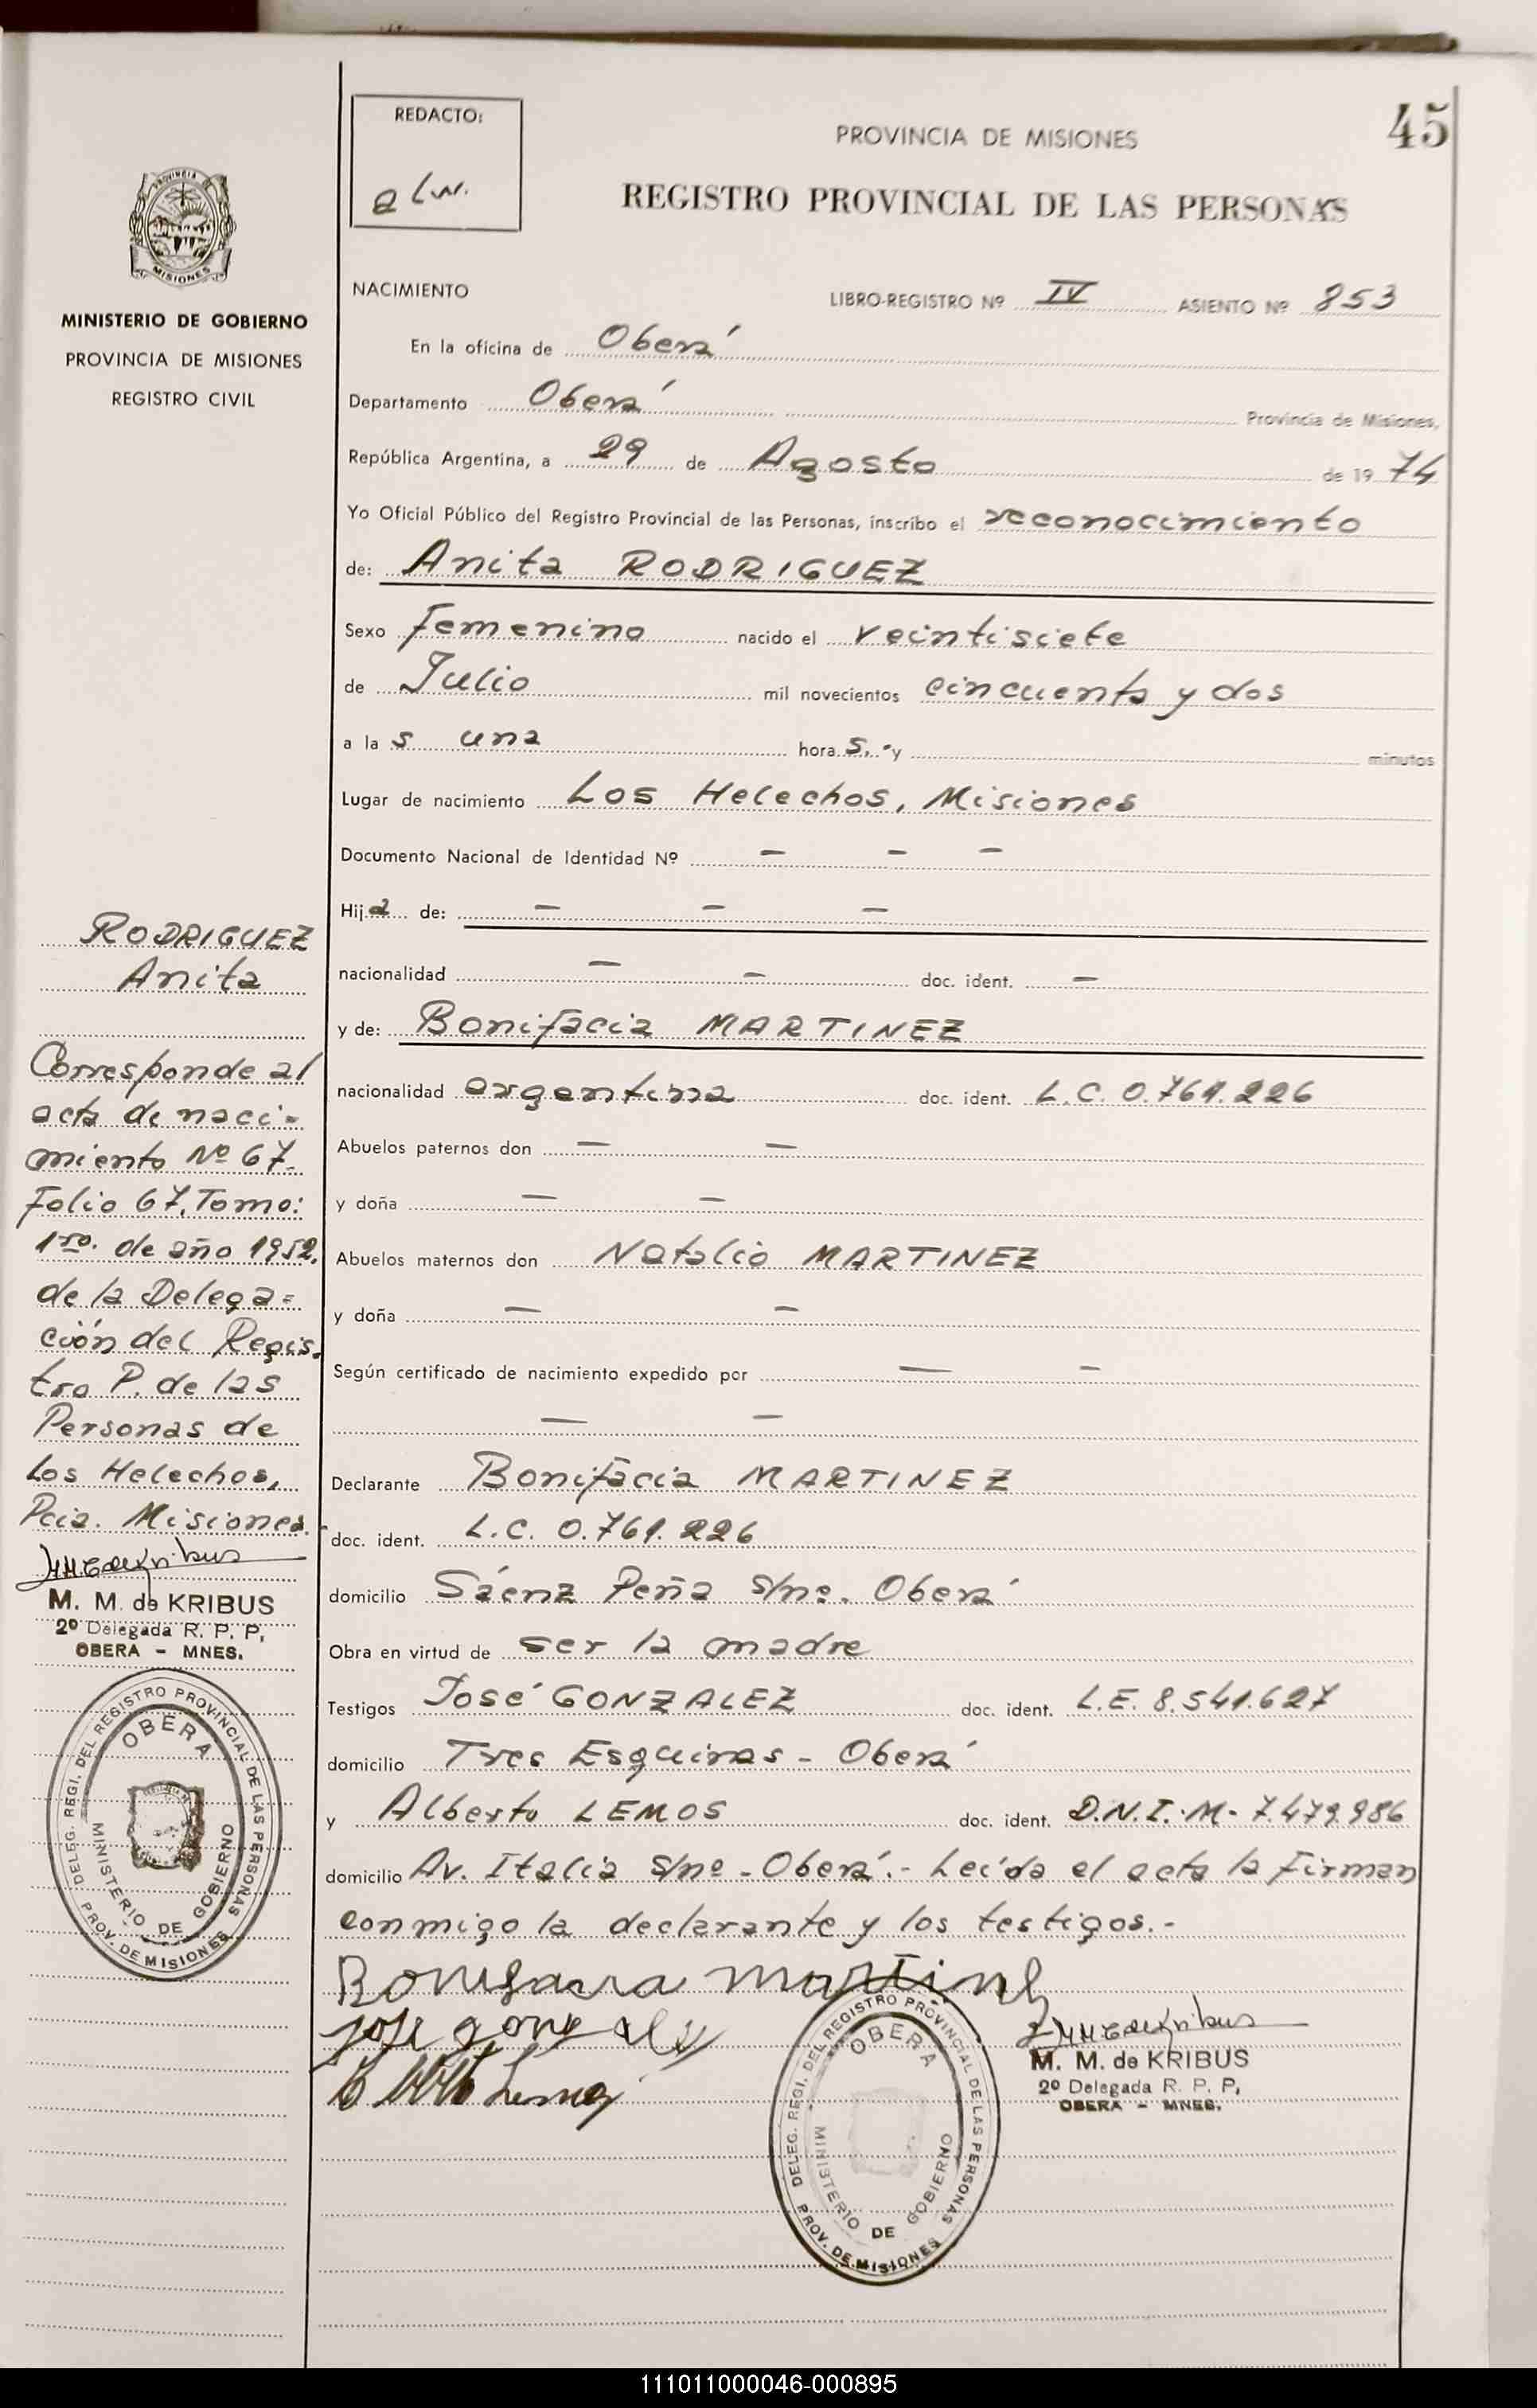 45
REDACTO:
PROVINCIA DE MISIONES
REGISTRO PROVINCIAL DE LAS PERSONAS
PROVINCIA DE
MISIONES
MINISTERIO DE GOBIERNO
PROVINCIA DE MISIONES
REGISTRO CIVIL
NACIMIENTO LIBRO-REGISTRO Nº IV ASIENTO Nº 853
En la oficina de Oberá
Departamento Oberá Provincia de Misiones,
República Argentina, a 29 de Agosto de 19 74
Yo Oficial Público del Registro Provincial de las Personas, inscribo el reconocimiento
de: Anita RODRIGUEZ
Sexo Femenino nacido el veintisiete
de Julio mil novecientos cincuenta y dos
a la s una hora s.- y minutos
Lugar de nacimiento Los Helechos, Misiones
Documento Nacional de Identidad Nº — — —
Hij a de: — — —
nacionalidad — — doc. ident. —
y de: Bonifacia MARTINEZ
nacionalidad argentina doc. ident. L.C. 0.761.226
Abuelos paternos don — —
y doña — —
Abuelos maternos don Natalio MARTINEZ
y doña — —
Según certificado de nacimiento expedido por — —
— —
Declarante Bonifacia MARTINEZ
doc. ident. L.C. 0.761.226
domicilio Sáenz Peña s/nº. Oberá
Obra en virtud de ser la madre
Testigos José GONZALEZ doc. ident. L.E. 8.541.627
domicilio Tres Esquinas - Oberá
y Alberto LEMOS doc. ident. D.N.I.M- 7.479.986
domicilio Av. Italia s/nº - Oberá.- Leída el acta la firman
conmigo la declarante y los testigos.-
M. M. de KRIBUS
2º Delegada R. P. P,
OBERA - MNES.
DELEG. REGI. DEL REGISTRO PROVINCIAL DE LAS PERSONAS
OBERA
MINISTERIO DE GOBIERNO
PROV. DE MISIONES
RODRIGUEZ
Anita
Corresponde al
acta de naci=
miento Nº 67-
Folio 67. Tomo:
1ro. de año 1952.
de la Delega=
ción del Regis.
tro P. de las
Personas de
Los Helechos,
Pcia. Misiones.
M. M. de KRIBUS
2º Delegada R. P. P,
OBERA - MNES.
DELEG. REGI. DEL REGISTRO PROVINCIAL DE LAS PERSONAS
OBERA
MINISTERIO DE GOBIERNO
PROV. DE MISIONES
111011000046-000895